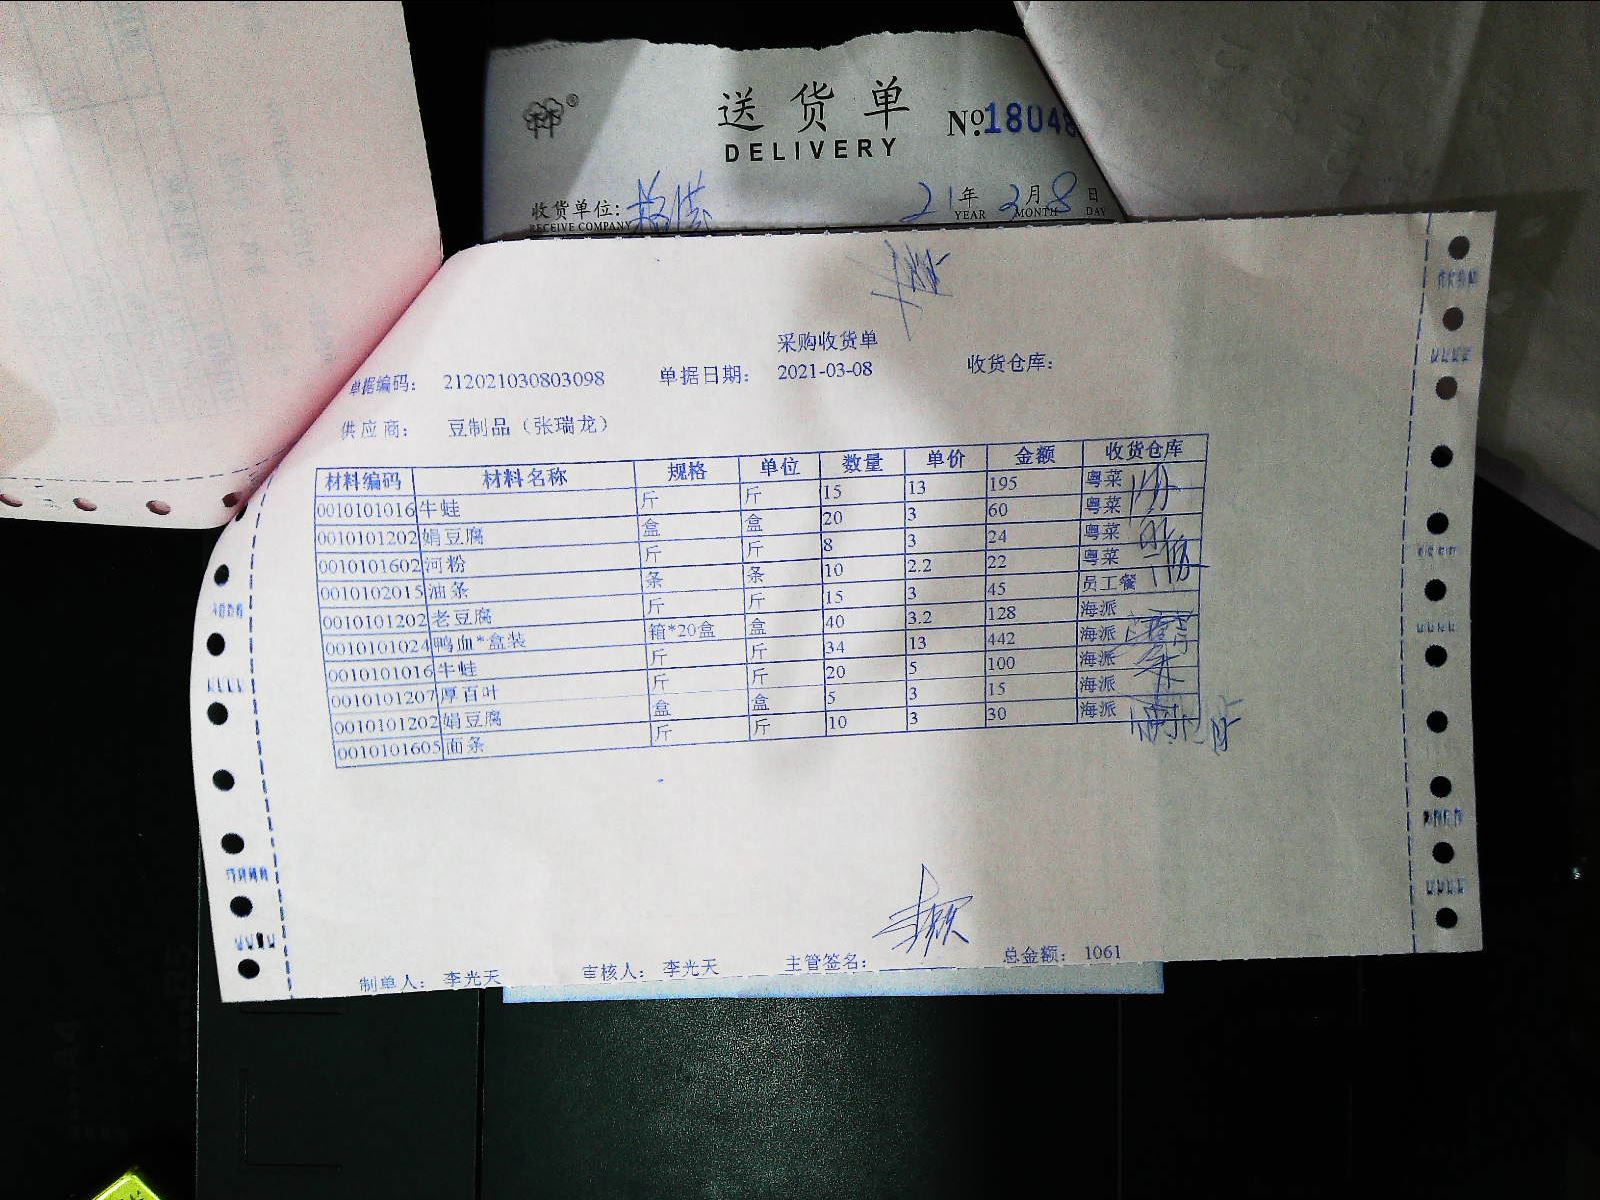 送货单
DELIVERY
№.18048
收货单位:
RECEIVE COMPANY
21年3月8日
YEAR MONTH DAY
采购收货单
单据编码: 212021030803098 单据日期: 2021-03-08 收货仓库:
供应商: 豆制品（张瑞龙）
材料编码 材料名称 规格 单位 数量 单价 金额 收货仓库
0010101016 牛蛙 斤 斤 15 13 195 粤菜
0010101202 娟豆腐 盒 盒 20 3 60 粤菜
0010101602 河粉 斤 斤 8 3 24 粤菜
0010102015 油条 条 条 10 2.2 22 粤菜
0010101202 老豆腐 斤 斤 15 3 45 员工餐
0010101024 鸭血*盒装 箱*20盒 盒 40 3.2 128 海派
0010101016 牛蛙 斤 斤 34 13 442 海派
0010101207 厚百叶 斤 斤 20 5 100 海派
0010101202 娟豆腐 盒 盒 5 3 15 海派
0010101605 面条 斤 斤 10 3 30 海派
制单人: 李光天 审核人: 李光天 主管签名: 总金额: 1061